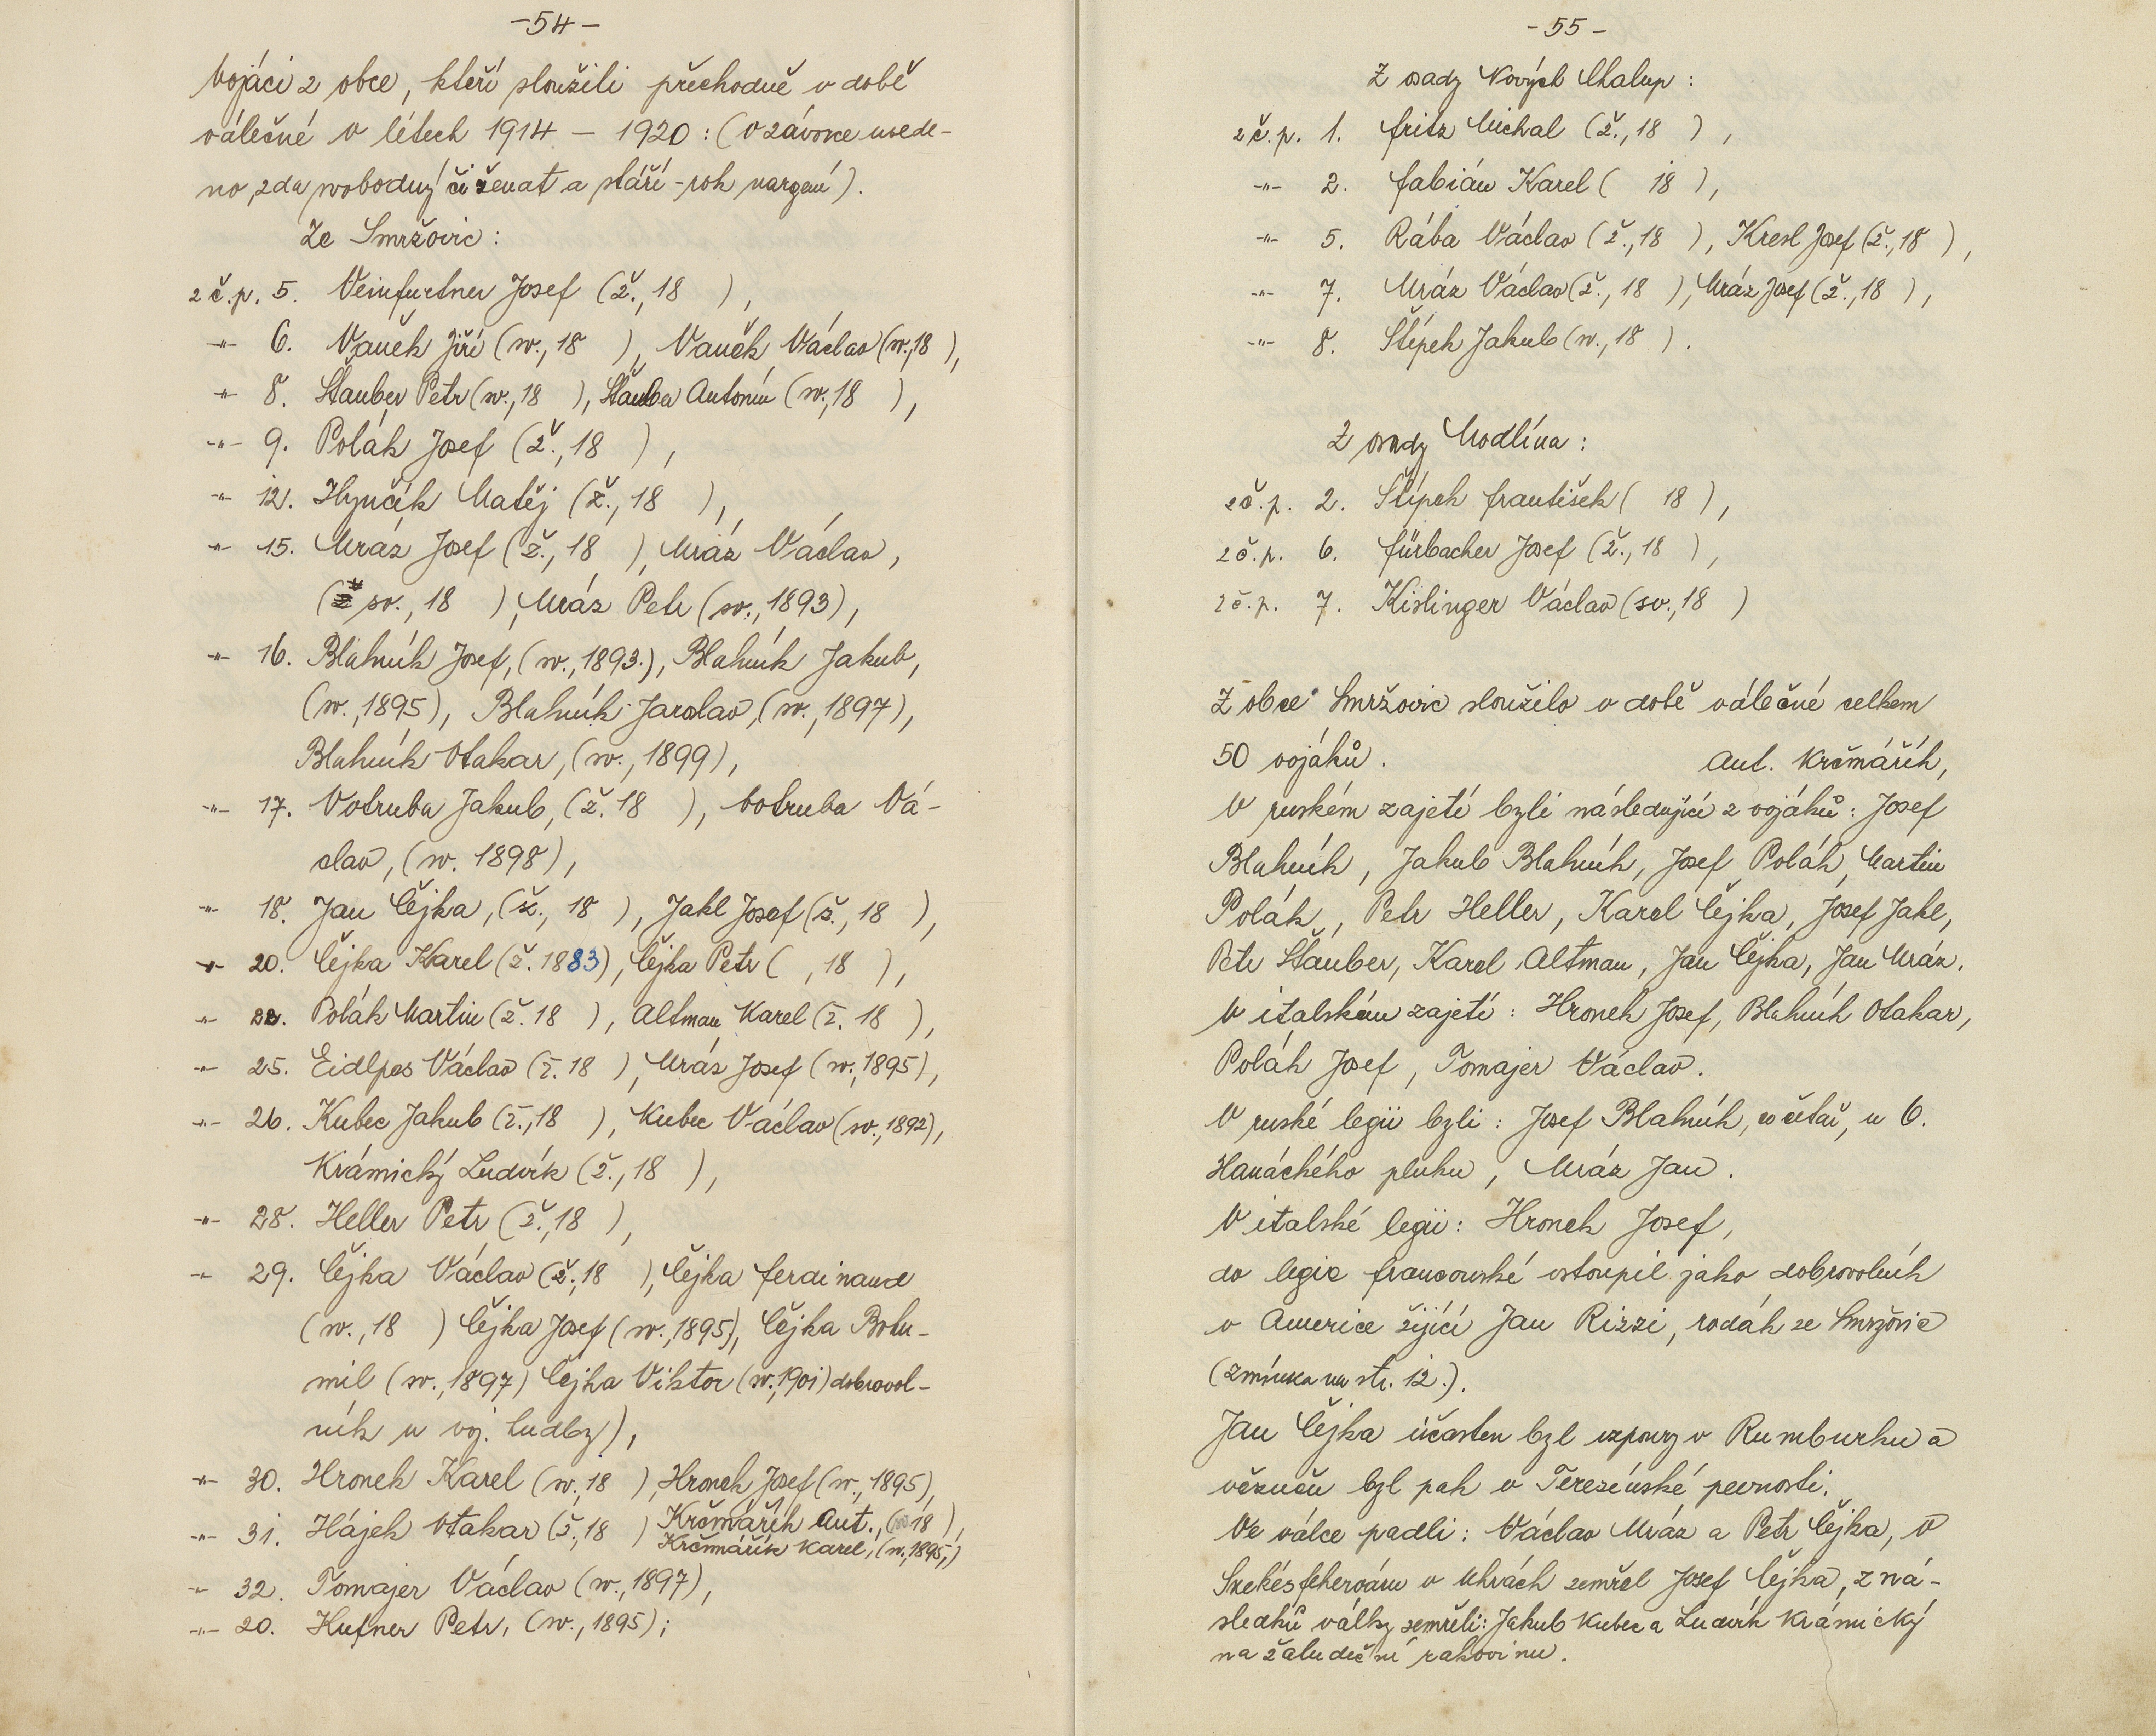 -54-
Vojáci z obce, kteří sloužili přechodně v době
válečné v létech 1914 - 1920: (v závorce uvede-
no zda svobodný či ženat a stáří - rok narzení).
Ze Smržovic:
z č.p. 5. Veinfurtner Josef (ž., 18 ),
-"- 6. Vaněk Jiří (sv., 18 ), Vaněk Václav (sv., 18 ),
-"- 8. Štauber Petr (sv., 18 ), Štauber Antonín (sv., 18 ),
-"- 9. Polák Josef (ž., 18 ),
-"- 12. Hynčík Matěj (ž., 18 ),
-"- 15. Mráz Josef (ž., 18 ), Mráz Václav,
(sv., 18 ), Mráz Petr (sv., 1893),
-"- 16. Blahník Josef, (sv., 1893.), Blahník Jakub,
(sv., 1895), Blahník Jaroslav, (sv., 1897),
Blahník Otakar, (sv., 1899),
-"- 17. Votruba Jakub, (ž. 18 ), Votruba Vá-
clav, (sv. 1898),
-"- 18. Jan Čejka, (ž., 18 ), Jakl Josef (ž., 18 ),
-"- 20. Čejka Karel (ž. 1883), Čejka Petr ( , 18 ),
-"- 22. Polák Martin (ž. 18 ), Altman Karel (ž. 18 ),
-"- 25. Eidlpes Václav (ž. 18 ), Mráz Josef (sv., 1895),
-"- 26. Kubec Jakub (ž., 18 ), Kubec Václav (sv., 1892),
Krámický Ludvík (ž., 18 ),
-"- 28. Heller Petr (ž., 18 ),
-"- 29. Čejka Václav (ž., 18 ), Čejka Ferdinand
(sv., 18 ) Čejka Josef (sv., 1895), Čejka Bohu-
mil (sv., 1897) Čejka Viktor (sv., 1901) dobrovol-
ník u voj. hudby),
-"- 30. Hronek Karel (sv., 18 ), Hronek Josef (sv., 1895),
-"- 31. Hájek Otakar (ž., 18 ) Krčmářík Ant., ( 18 ),
Krčmářík Karel, (sv., 1895,)
-"- 32. Tomajer Václav (sv., 1897),
-"- 20. Hufner Petr, (sv., 1895);
-55-
Z osady Nových Chalup:
z č.p. 1. Fritz Michal (ž., 18 ),
-"- 2. Fabián Karel ( 18 ),
-"- 5. Rába Václav (ž., 18 ), Kresl Josef (ž., 18 ),
-"- 7. Mráz Václav (ž., 18 ), Mráz Josef (ž., 18 ),
-"- 8. Štípek Jakub (sv., 18 ).
Z osady Modlína:
z č.p. 2. Štípek František ( 18 ),
z č.p. 6. Fürbacher Josef (ž., 18 ),
z č.p. 7. Kislinger Václav (sv., 18 )
Z obce Smržovic sloužilo v době válečné celkem
50 vojáků. Ant. Krčmářík,
V ruském zajetí byli následující z vojáků: Josef
Blahník, Jakub Blahník, Josef Polák, Martin
Polák, Petr Heller, Karel Čejka, Josef Jakl,
Petr Štauber, Karel Altman, Jan Čejka, Jan Mráz.
V italském zajetí: Hronek Josef, Blahník Otakar,
Polák Josef, Tomajer Václav.
V ruské legii byli: Josef Blahník, co četař, u 6.
Hanáckého pluku, Mráz Jan.
V italské legii: Hronek Josef,
do legie francouzské vstoupil jako dobrovolník
v Americe žijící Jan Rizzi, rodák ze Smržovic
(zmínka na str. 12.).
Jan Čejka účasten byl vzpoury v Rumburku a
vězněn byl pak v Terezínské pevnosti.
Ve válce padli: Václav Mráz a Petr Čejka, v
Szekésfehervaru v Uhrách zemřel Josef Čejka, z ná-
sledků války zemřeli: Jakub Kubec a Ludvík Krámický
na žaludeční rakovinu.